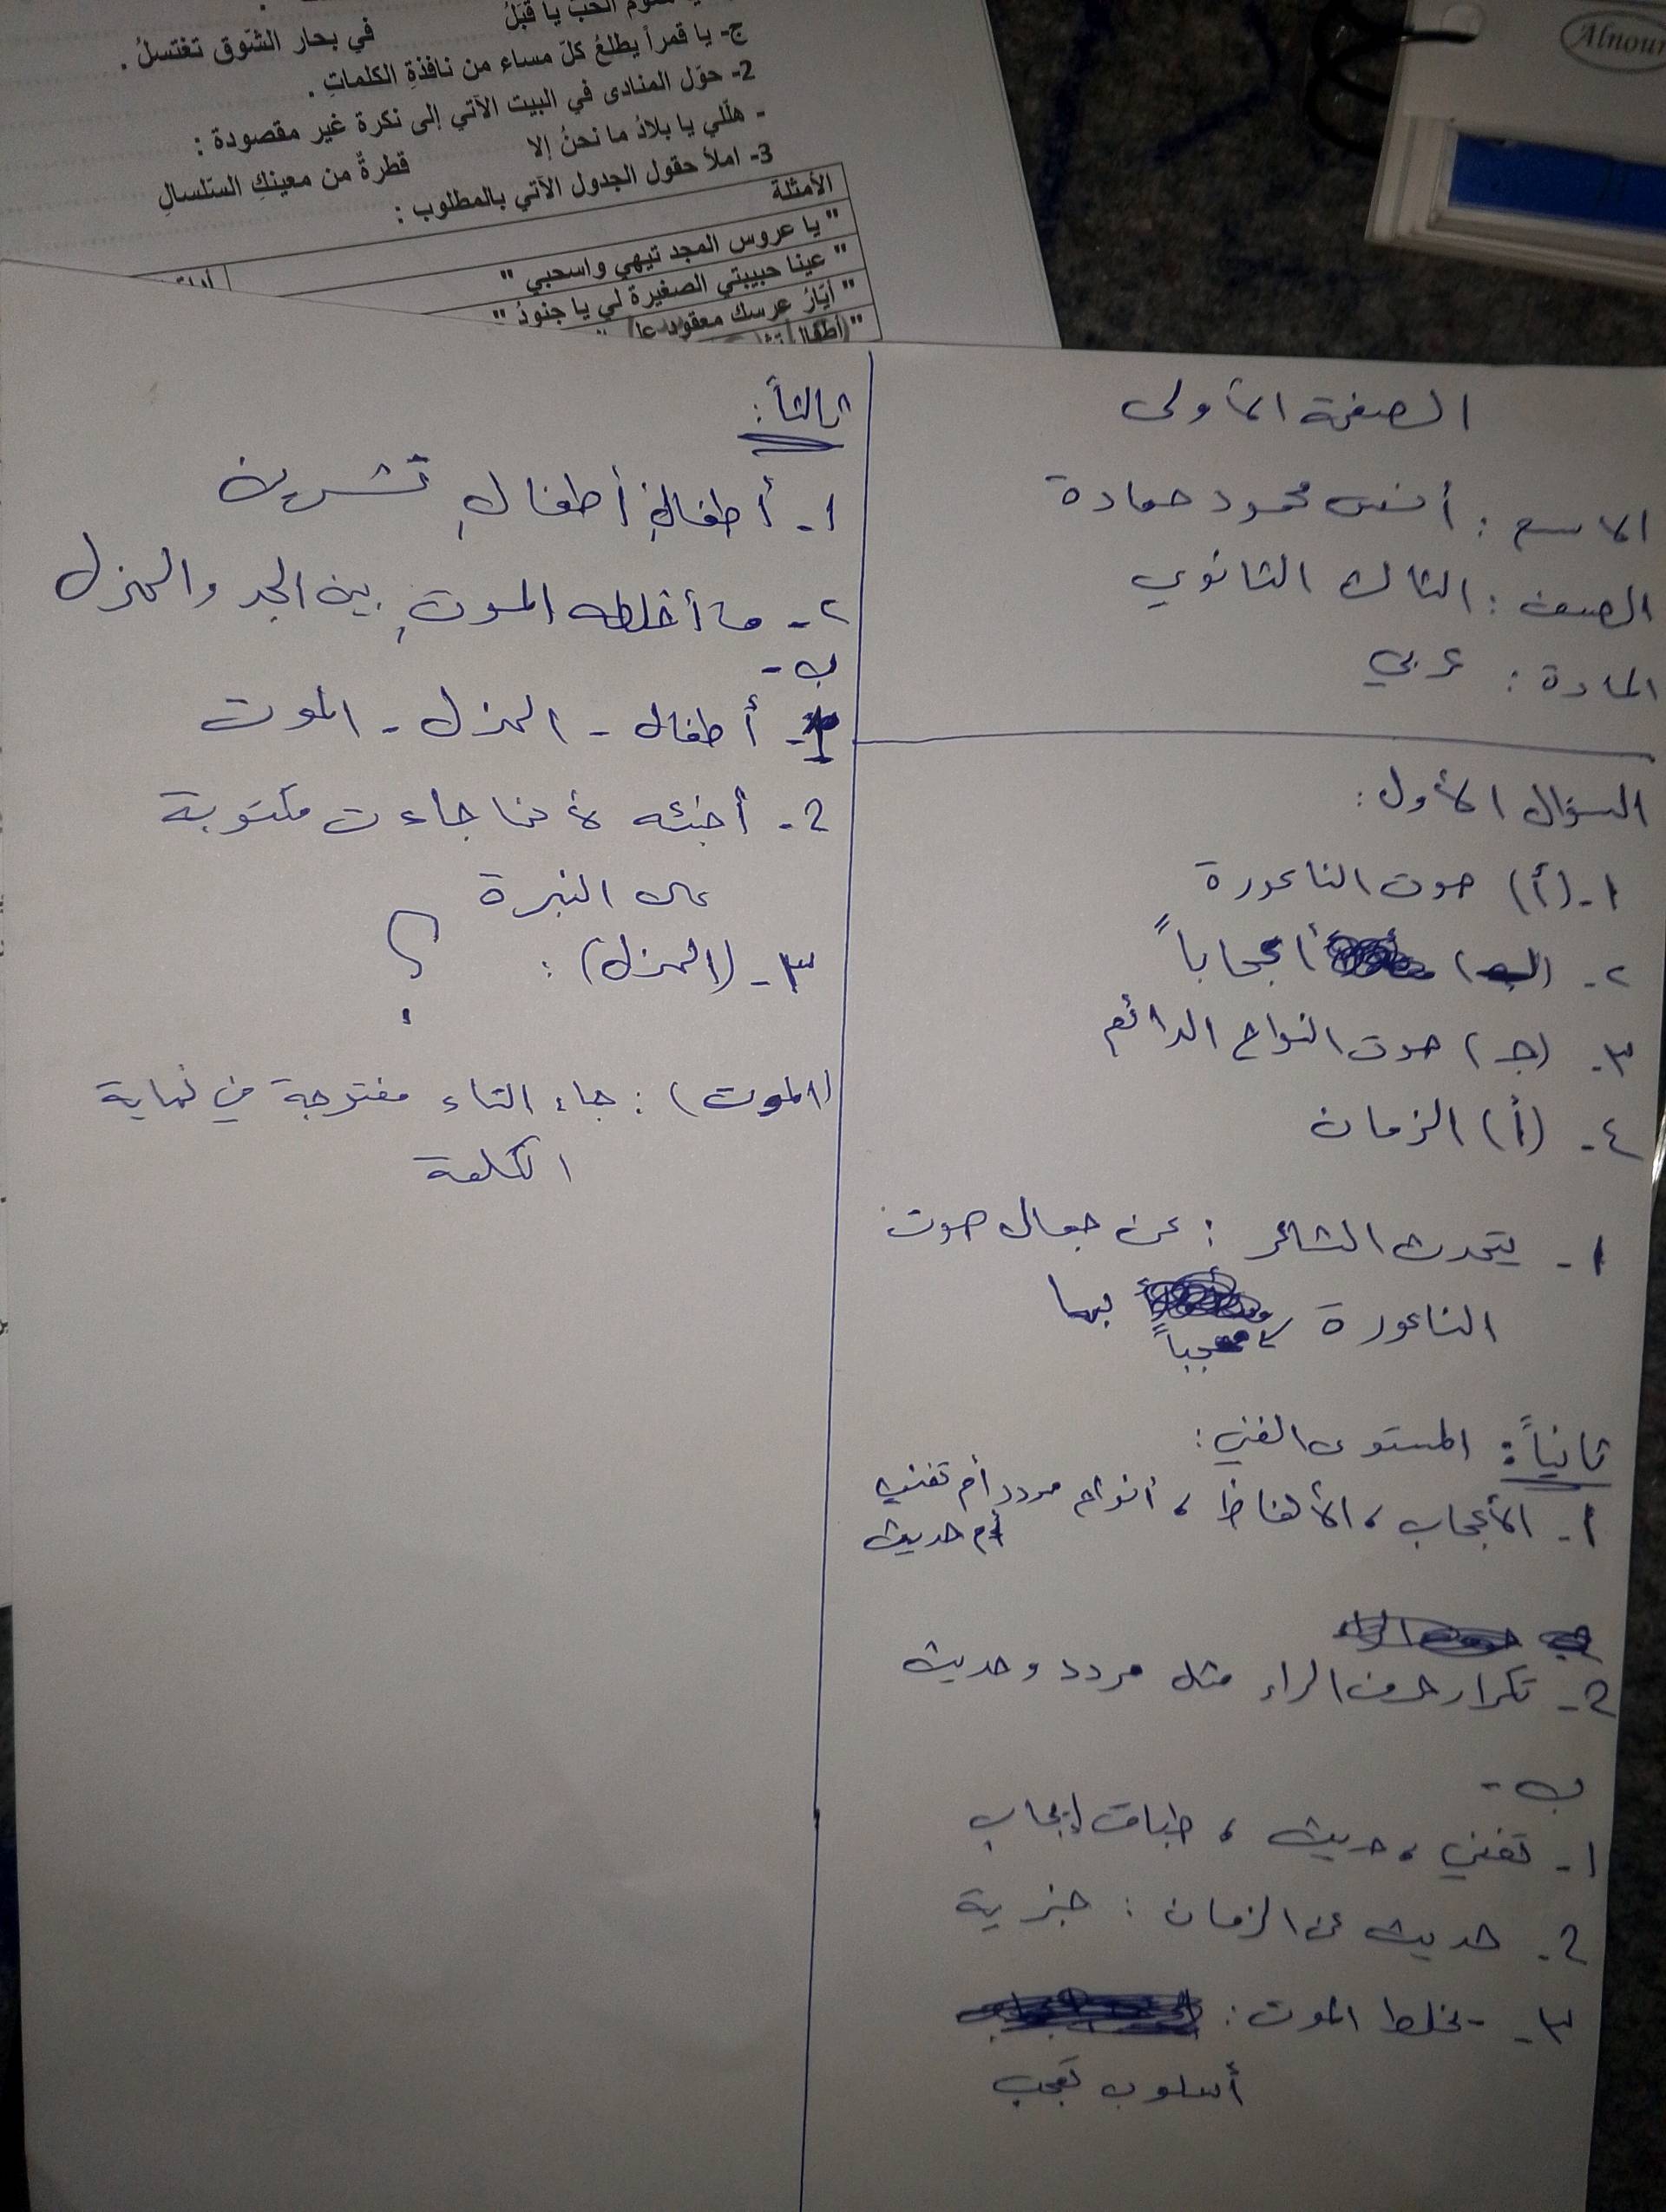 يا قبلُ
في بحار الشّوق تغتسلُ .
ج- يا قمراً يطلعُ كلّ مساء من نافذةِ الكلماتِ .
2- حوّل المنادى في البيت الآتي إلى نكرة غير مقصودة :
- هلّلي يا بلادُ ما نحنُ إلا قطرةٌ من معينكِ السّلسالِ
3- املأ حقول الجدول الآتي بالمطلوب :
الأمثلة
" يا عروس المجد تيهي واسحبي "
" عينا حبيبتي الصغيرة لي يا جنودُ "
" أيّارُ عرسك معقود
Alnour
الصفحة الأولى
الاسم : أنس محمود حمادة
الصف : الثالث الثانوي
المادة : عربي
السؤال الأول :
١- (أ) صوت الناعورة
٢- (ب) اعجاباً
٣- (ج) صوت النواح الدائم
٤- (أ) الزمان
١- يتحدث الشاعر : عن جمال صوت
الناعورة معجباً بها
ثانياً : المستوى الفني :
١- الأعجاب ، الألفاظ ، أنواح مردد أم تغني
أم حديث
2- تكرار حرف الراء مثل مردد وحديث
ب -
١- تغني ، حديث ، طباق إيجاب
2- حديث عن الزمان : خبرية
٣- يخلط الموت :
أسلوب تعجب
ثالثاً :
١- أطفال أطفالِ تشرين
٢- ما أخلطه الموتِ بين الجد والهزل
ب -
1- أطفال - الهزل - الموت
2- أخبئه لأنها جاءت مكتوبة
على النبرة
٣- (الهزل) : ؟
(الموت) : جاء التاء مفتوحة في نهاية
الكلمة